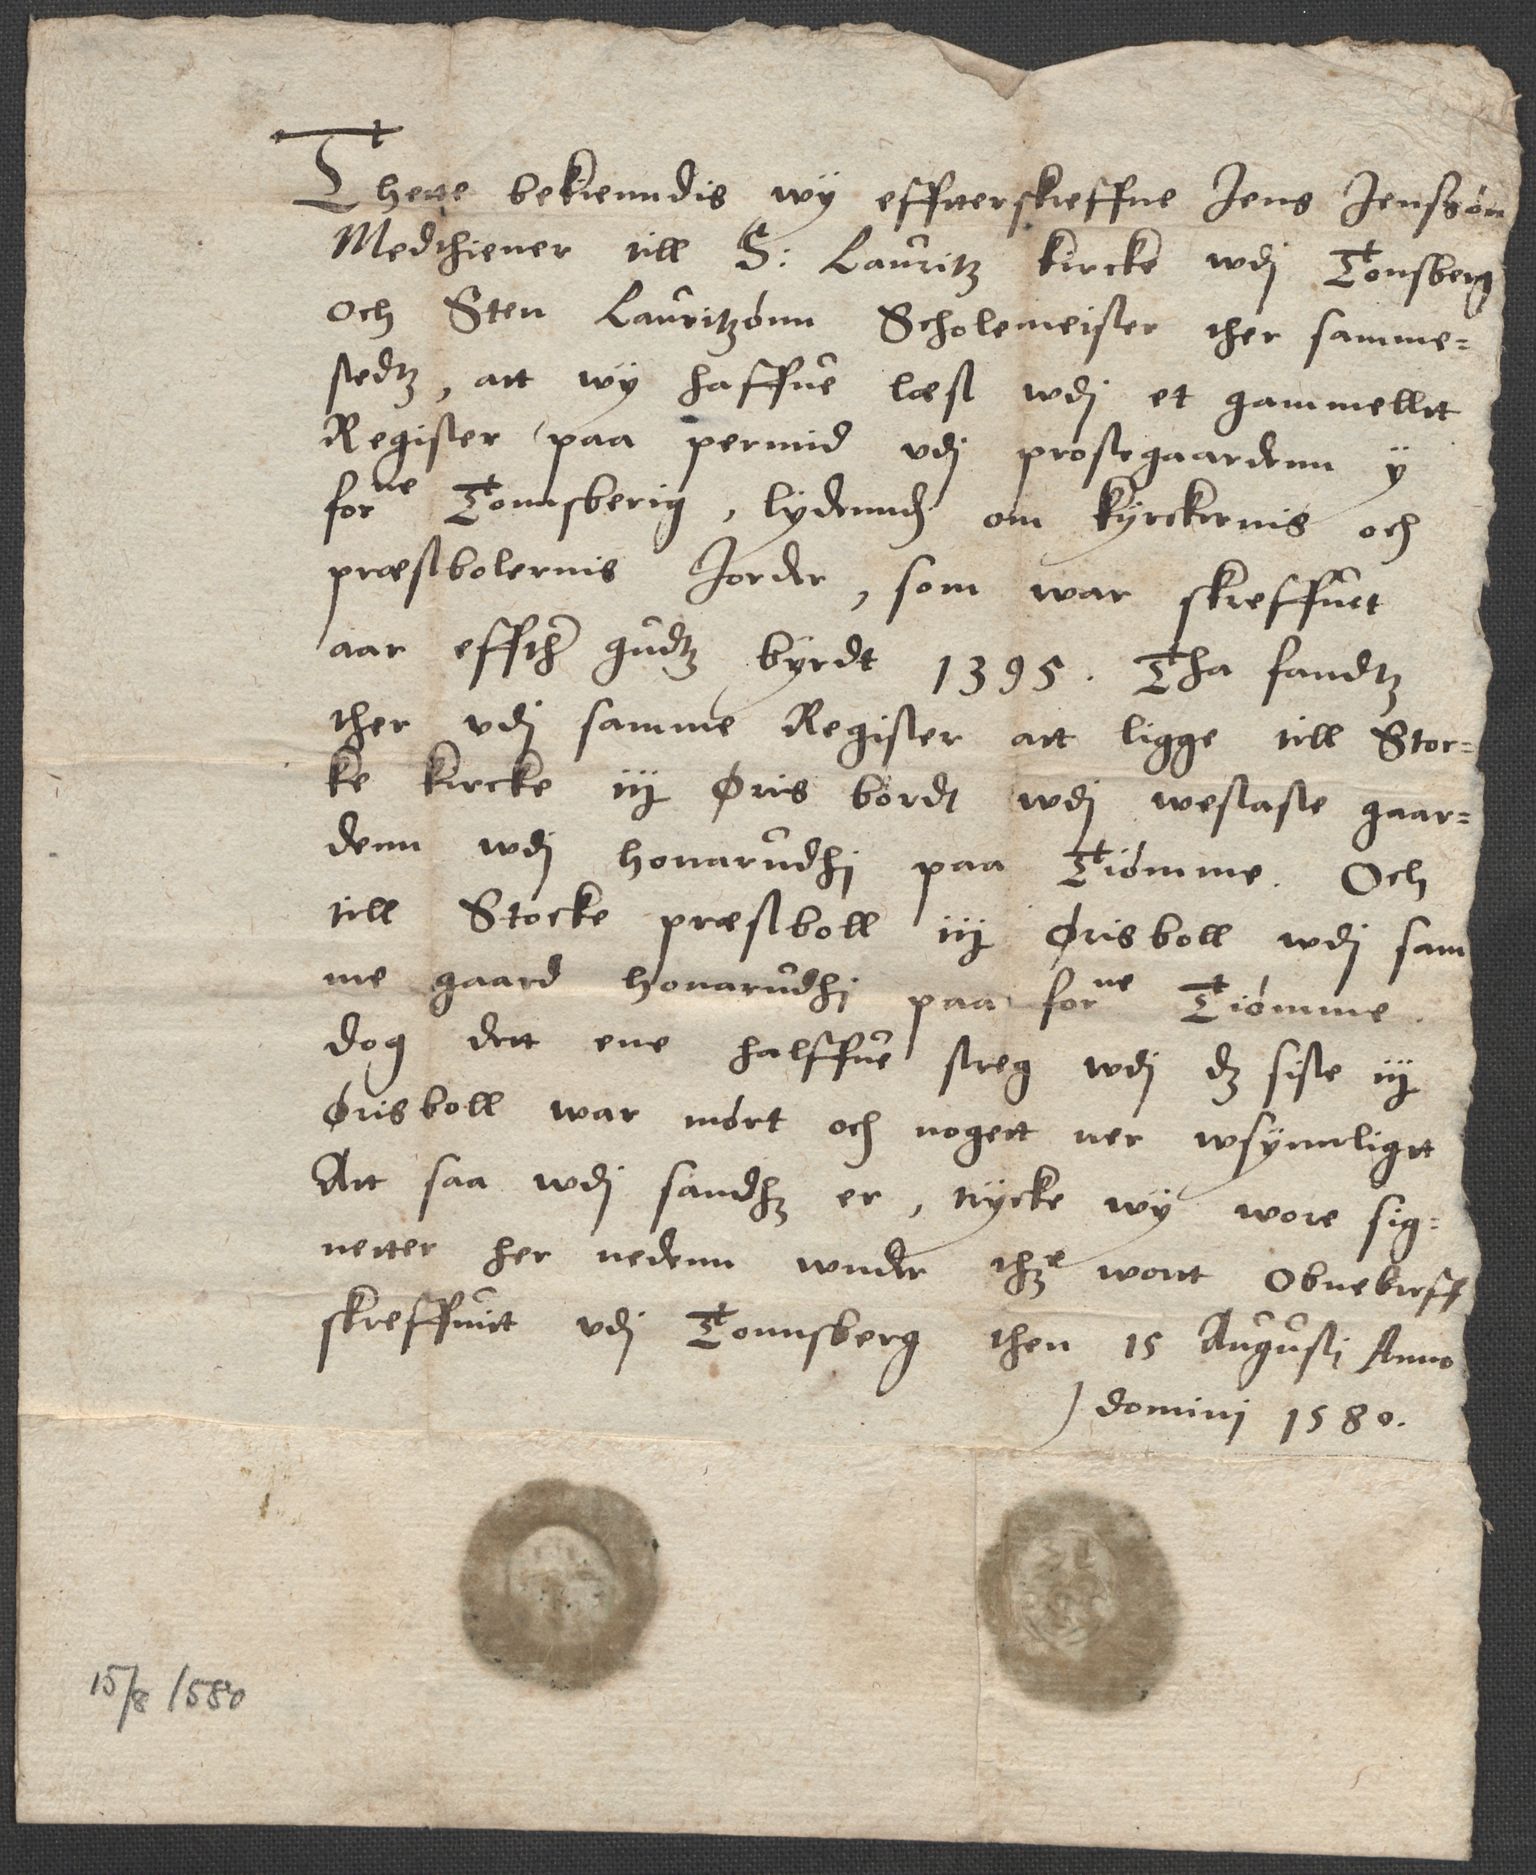 Thette bekiendis wÿ effterskreffne Jens Jenssøn
Medthiener till S: Lauritz kircke wdj Tonsberg
och Sten Lauritzønn Scholemeister ther samme=
stedtz, att wÿ haffue læst wdj et gammellt
Register paa permid vdj prostegaardenn ÿ
forne Tonnsberig, lÿdenndh om kÿrckernis och
præstbolernis Jorder, som war skreffuet
aar effther gudtz bÿrdt 1395. Tha fandtz
ther vdj samme Register att ligge till Stor=
ke kircke iij Øris bordt wdj westaste gaar=
denn wdj honarudhi paa Tiømme. Och
till Stocke præstboll iij Øris boll wdj sam
me gaard honarudhi paa forne Tiømme.
dog dett ene halffue streg wdj dz siste iij
Øris boll war mørt och nogett ner wsÿnnligtt
Att saa wdj sandhz er, trÿcke wÿ wore sig=
netter her nedenn wnder thze wort obnebreff
skreffuitt vdj Tonnsberg then 15 Augusti Anno
domini 1580.
15/8 1580